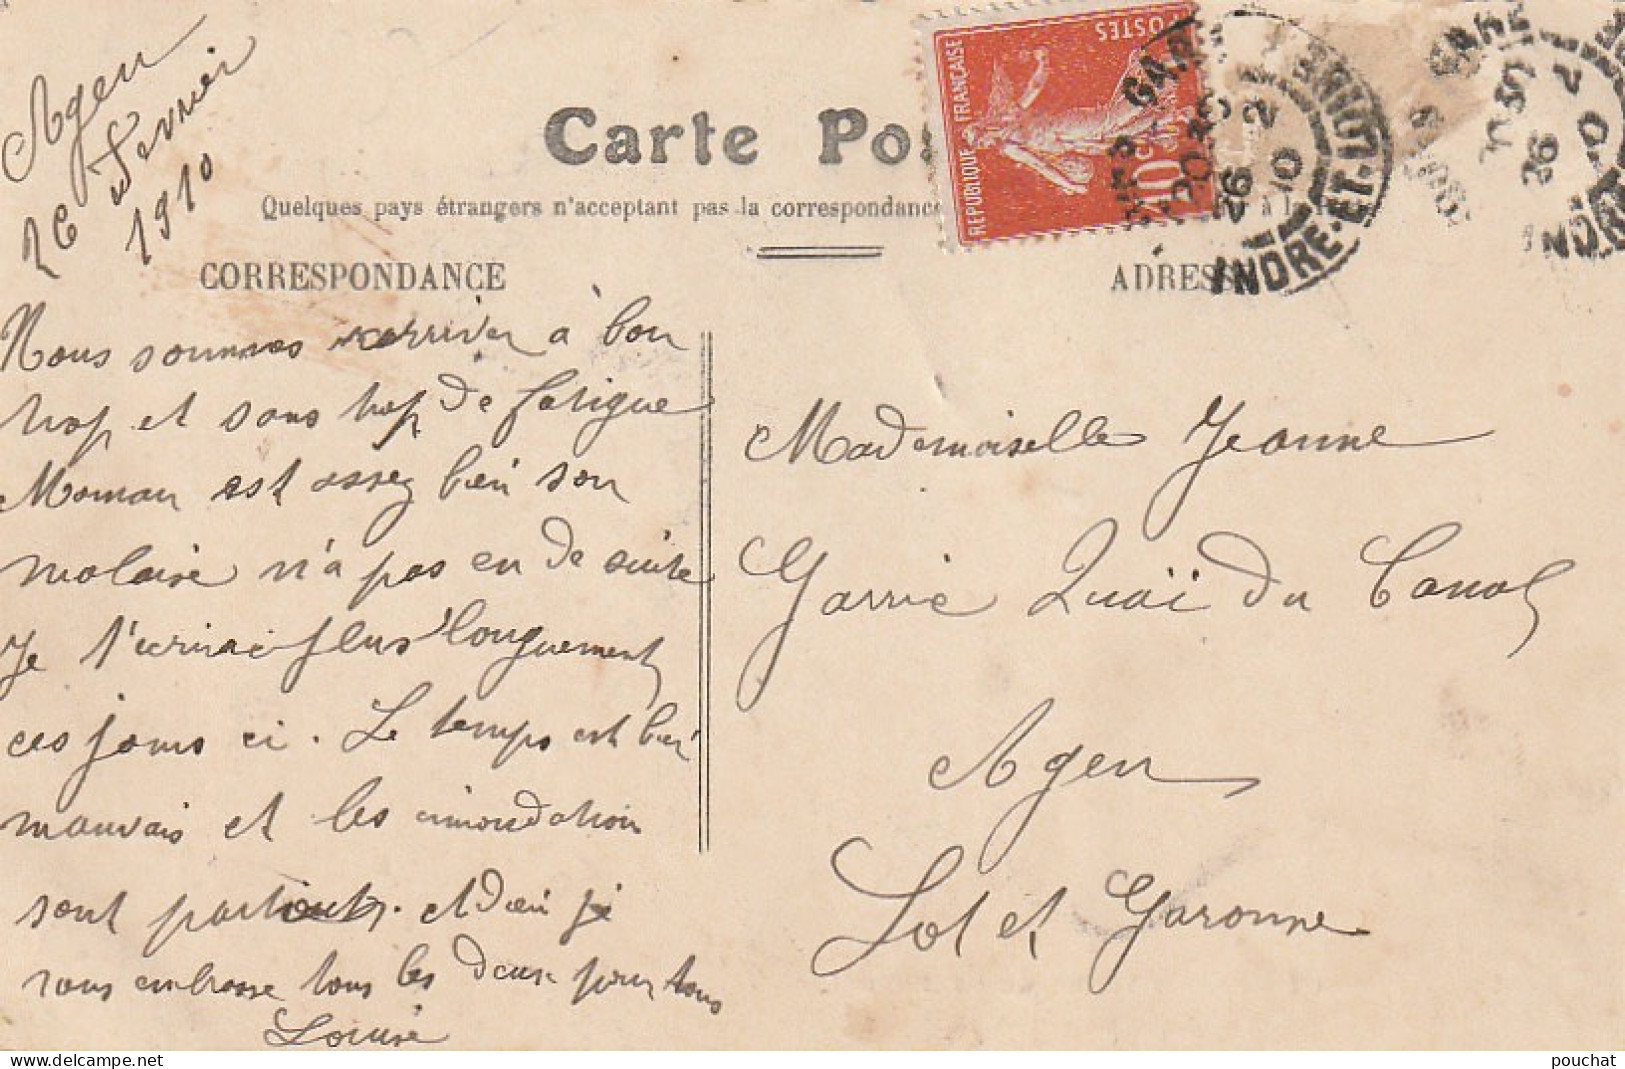 Agen
26 Fevrier
1910
Carte Po
Quelques pays étrangers n'acceptent pas la correspondance
CORRESPONDANCE
ADRESS
REPUBLIQUE FRANÇAISE
POSTES
10 C
INDRE-ET-
26 2 10
Nous sommes arriver à bon
trop et sans trop de fatigue
Maman est assez bien son
malaise n'a pas eu de suite
Je t'ecrirai plus longuement
ces jours ci. Le temps est bien
mauvais et les innondation
sont partout. et dieu je
vous embrasse tous les deux pour tous
Louise
Mademoiselle Jeanne
Garric Quai du Canal
Agen
Lot et Garonne
pouchat